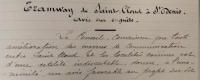 Tramway de Saint-Cloud à St Denis,
avis sur enquête.
Le Conseil, considérant que toute
amélioration des moyens de communication
entre Saint Cloud et les localités voisines est
d'une utilité indiscutable, donne, à l'una-
nimité, un avis favorable au projet sur dit